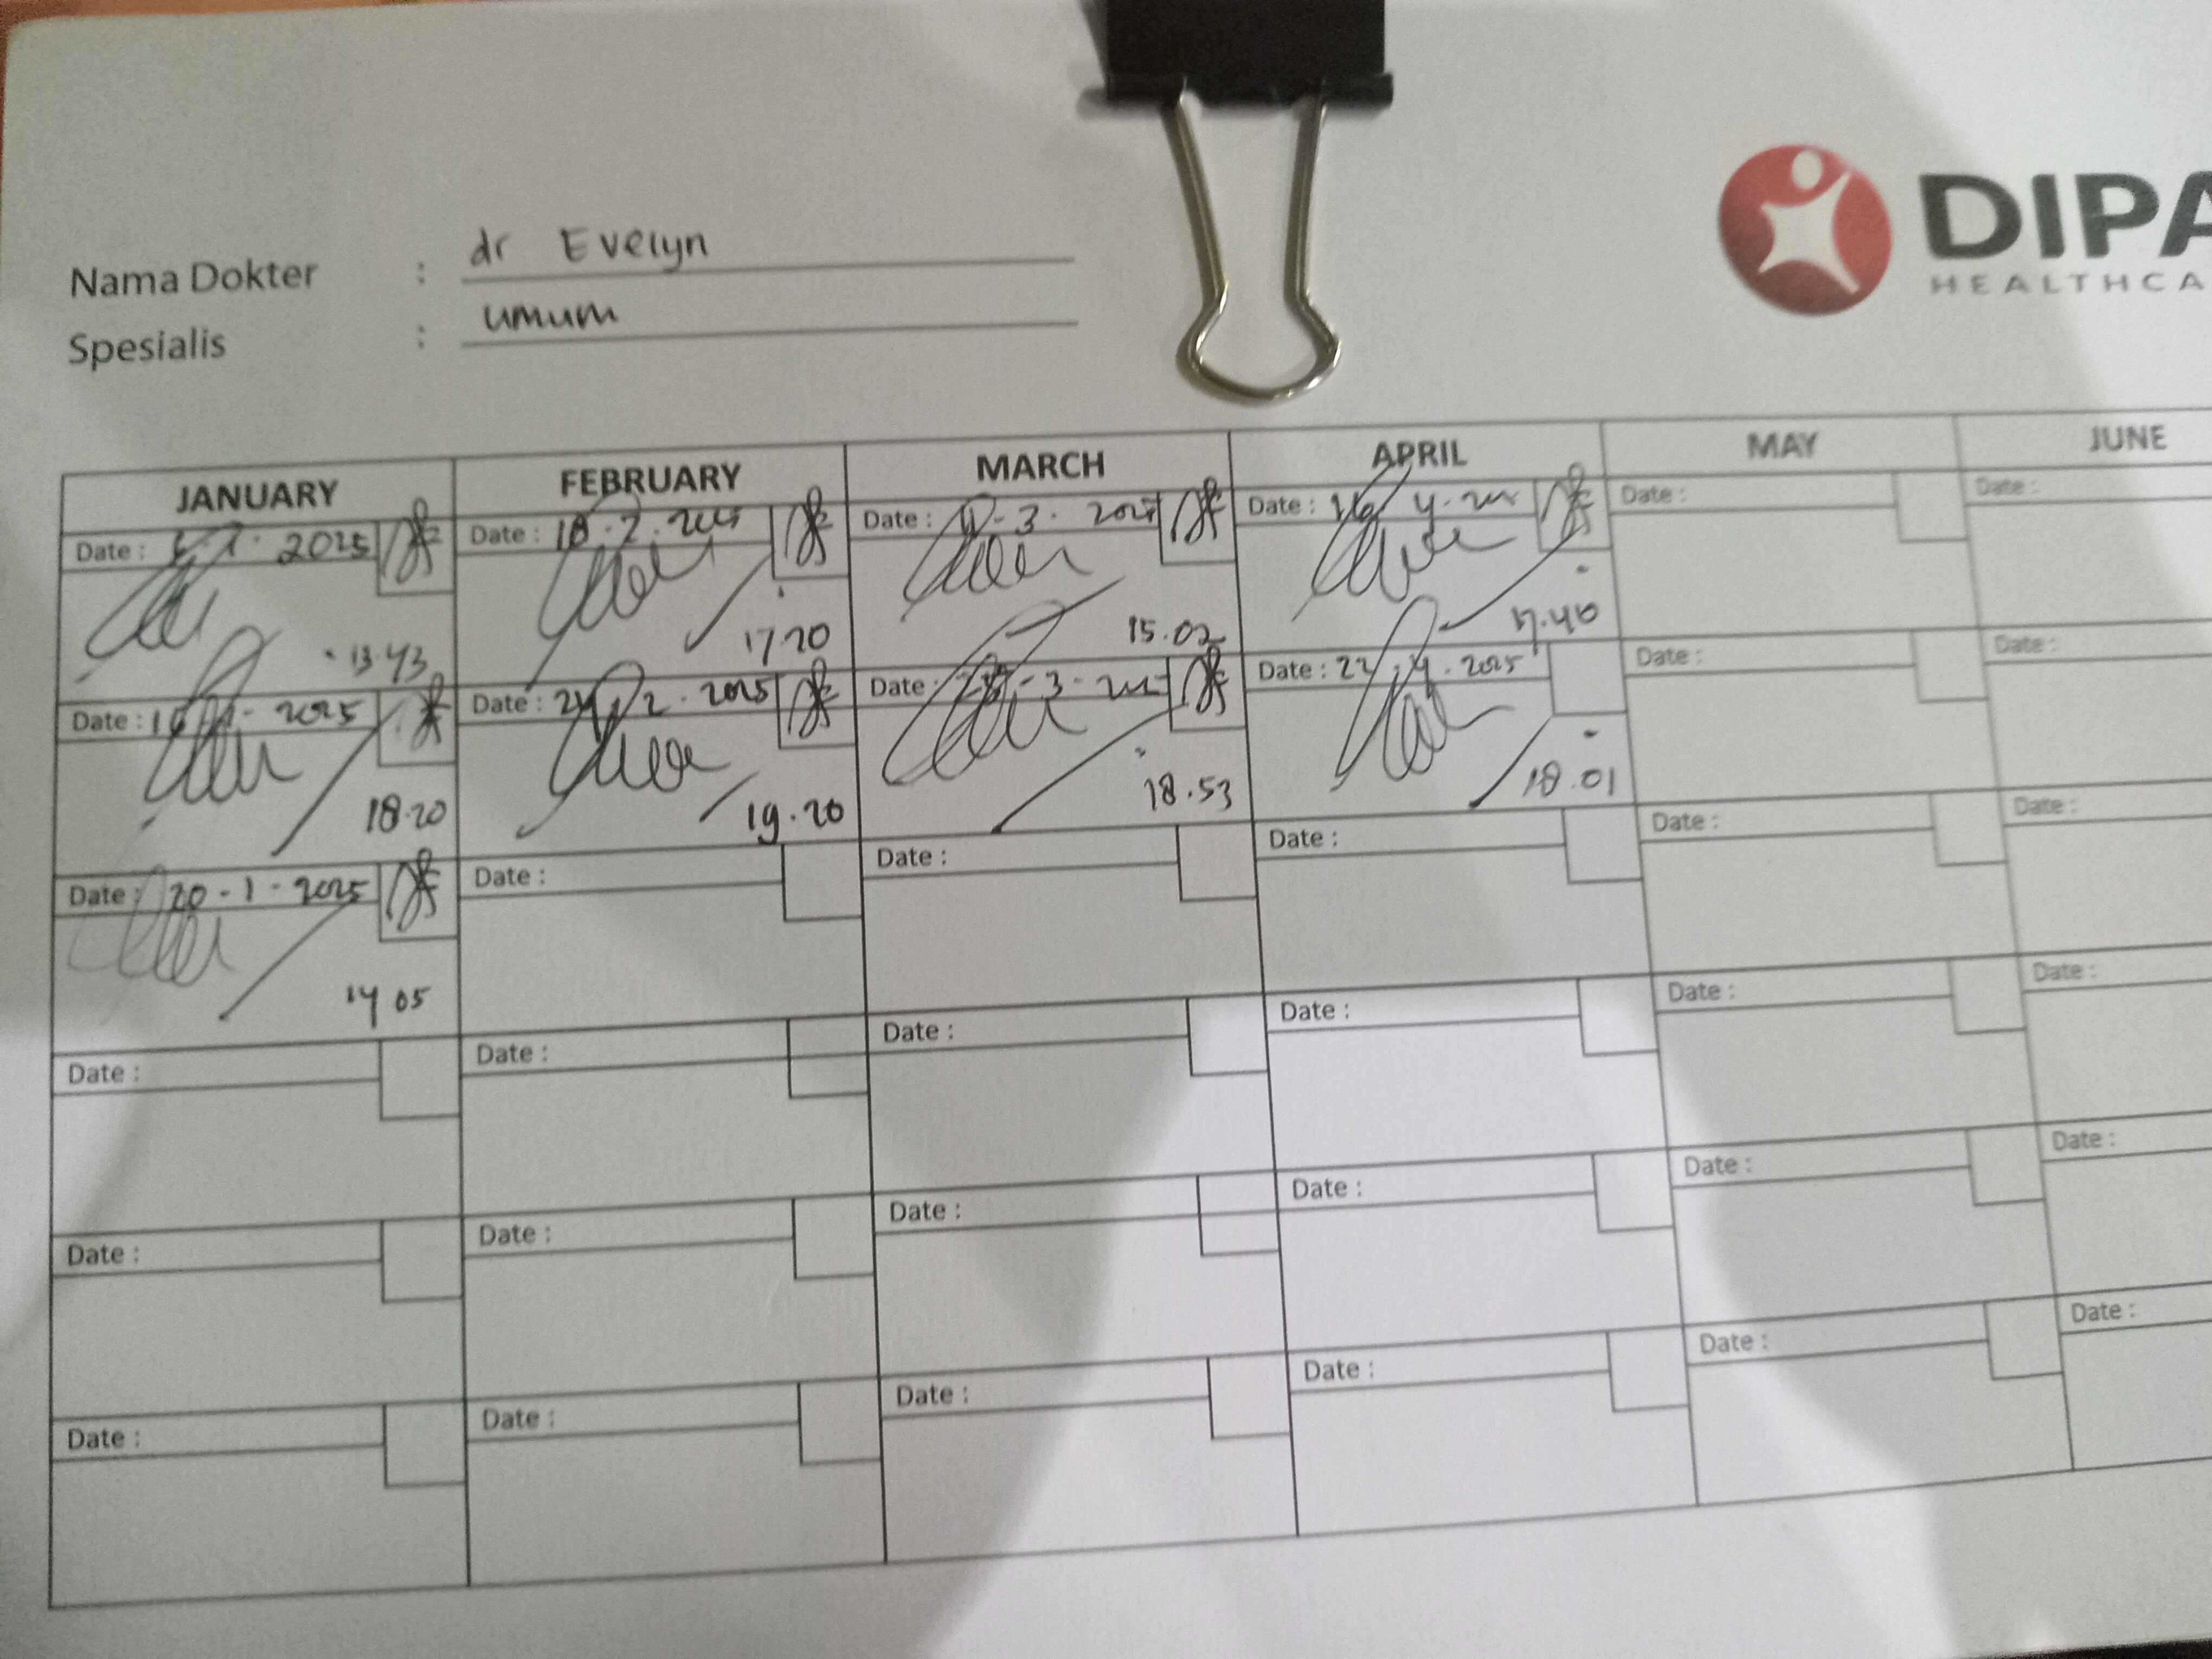 DIPA
HEALTHCA
Nama Dokter : dr Evelyn
Spesialis : umum
JANUARY FEBRUARY MARCH APRIL MAY JUNE
Date : 2025 Date : 18.2.2025 Date : 3. 2025 Date : 16 4. Date : Date :
13.43 17.20 15.02 17.40
Date : 2025 Date : 24.2.2025 Date : 3 Date : 22.4.2025 Date : Date :
18.20 19.20 18.53 18.01
Date : 20-1-2025 Date : Date : Date : Date : Date :
14 05
Date : Date : Date : Date : Date : Date :
Date : Date : Date : Date : Date : Date :
Date : Date : Date : Date : Date : Date :